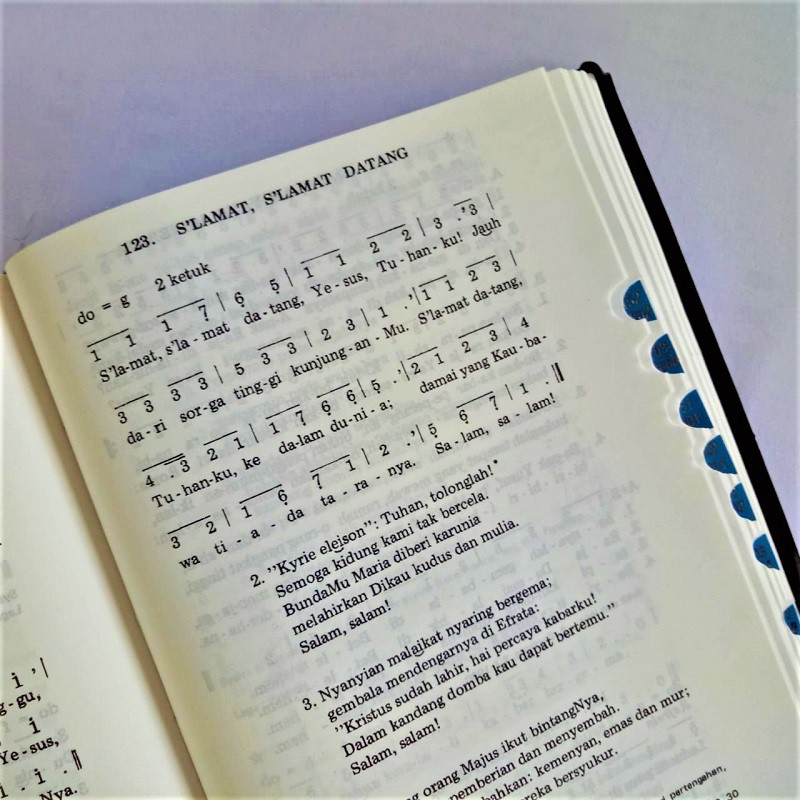 123. S'LAMAT, S'LAMAT DATANG
do = g 2 ketuk
1 1 1 7̣ | 6̣ 5̣ | 1 1 2 2 | 3 .' 3 |
S'la-mat, s'la-mat da-tang, Ye-sus, Tu-han-ku! Jauh
3 3 3 3 | 5 3 3 | 2 3 | 1 .' | 1 1 2 3 |
da-ri sor-ga ting-gi kunjung-an-Mu. S'lamat da-tang,
4 . 3 2 1 | 1 7̣ 6̣ 6̣ | 5̣ .' | 2 1 2 3 | 4
Tu-han-ku, ke da-lam du-ni-a; damai yang Kau-ba-
3 2 | 1 6̣ 7̣ 1 | 2 .' | 5̣ 6̣ 7̣ | 1 . ||
wa ti-a-da ta-ra-nya. Sa-lam, sa-lam!
2. ''Kyrie eleison'': Tuhan, tolonglah!*
Semoga kidung kami tak bercela.
BundaMu Maria diberi karunia
melahirkan Dikau kudus dan mulia.
Salam, salam!
3. Nyanyian malaikat nyaring bergema;
gembala mendengarnya di Efrata:
''Kristus sudah lahir, hai percaya kabarku!
Dalam kandang domba kau dapat bertemu.''
Salam, salam!
orang Majus ikut bintangNya,
pemberian dan menyembah.
bahkan: kemenyan, emas dan mur;
reka bersyukur.
pertengahan,
30
i ' |
g-gu,
i
Ye-sus,
i . i . ||
Nya.